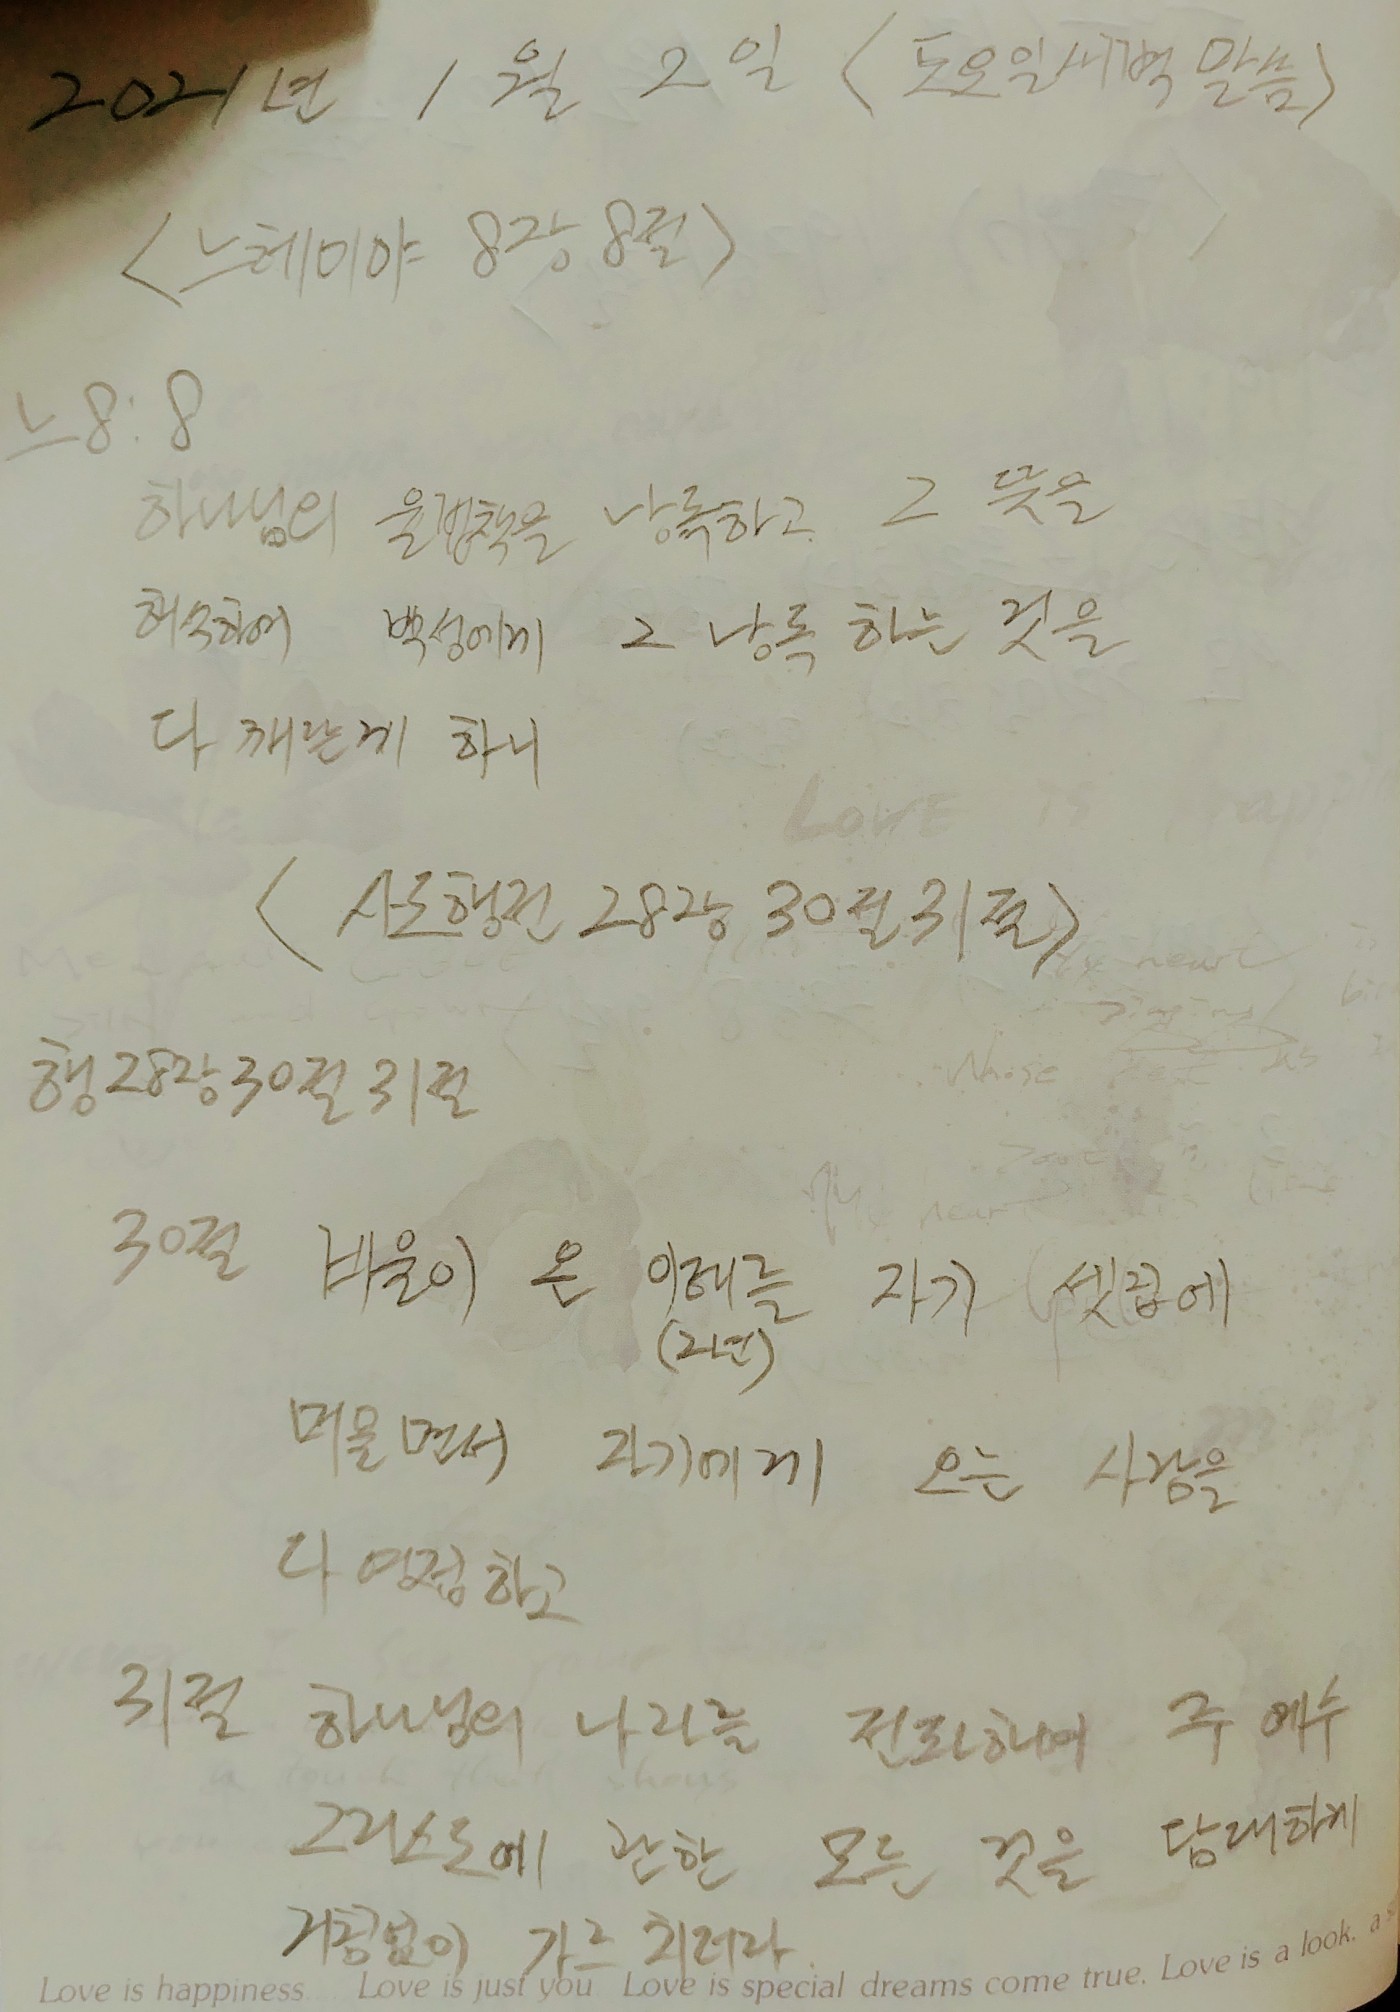 2021년 1월 2일 <토요일새벽말씀>
<느헤미야 8장 8절>
느8:8
하나님의 율법책을 낭독하고 그 뜻을
해석하여 백성에게 그 낭독 하는 것을
다 깨닫게 하니
<사도행전 28장 30절 31절>
행28장30절 31절
30절 바울이 온 이태를 자기 셋집에
(2년)
머물면서 자기에게 오는 사람을
다 영접하고
31절 하나님의 나라를 전파하며 주 예수
그리스도에 관한 모든 것을 담대하게
거침없이 가르치더라.
Love is happiness Love is just you Love is special dreams come true. Love is a look. a